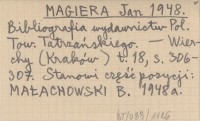 MAGIERA Jan 1948.
Bibliografia wydawnictw Pol.
Tow. Tatrzańskiego. — Wier-
chy (Kraków) t. 18, s. 306-
307. Stanowi część pozycji:
MAŁACHOWSKI B. 1948a.